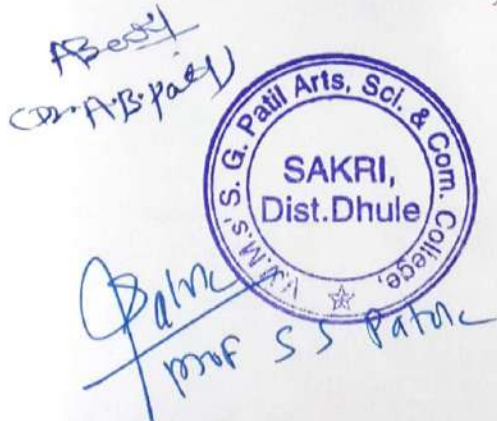 (Dr. A. B. Patil)
V.V.M.s' S. G. Patil Arts, Sci. & Com. College,
SAKRI,
Dist.Dhule
prof S S Patole